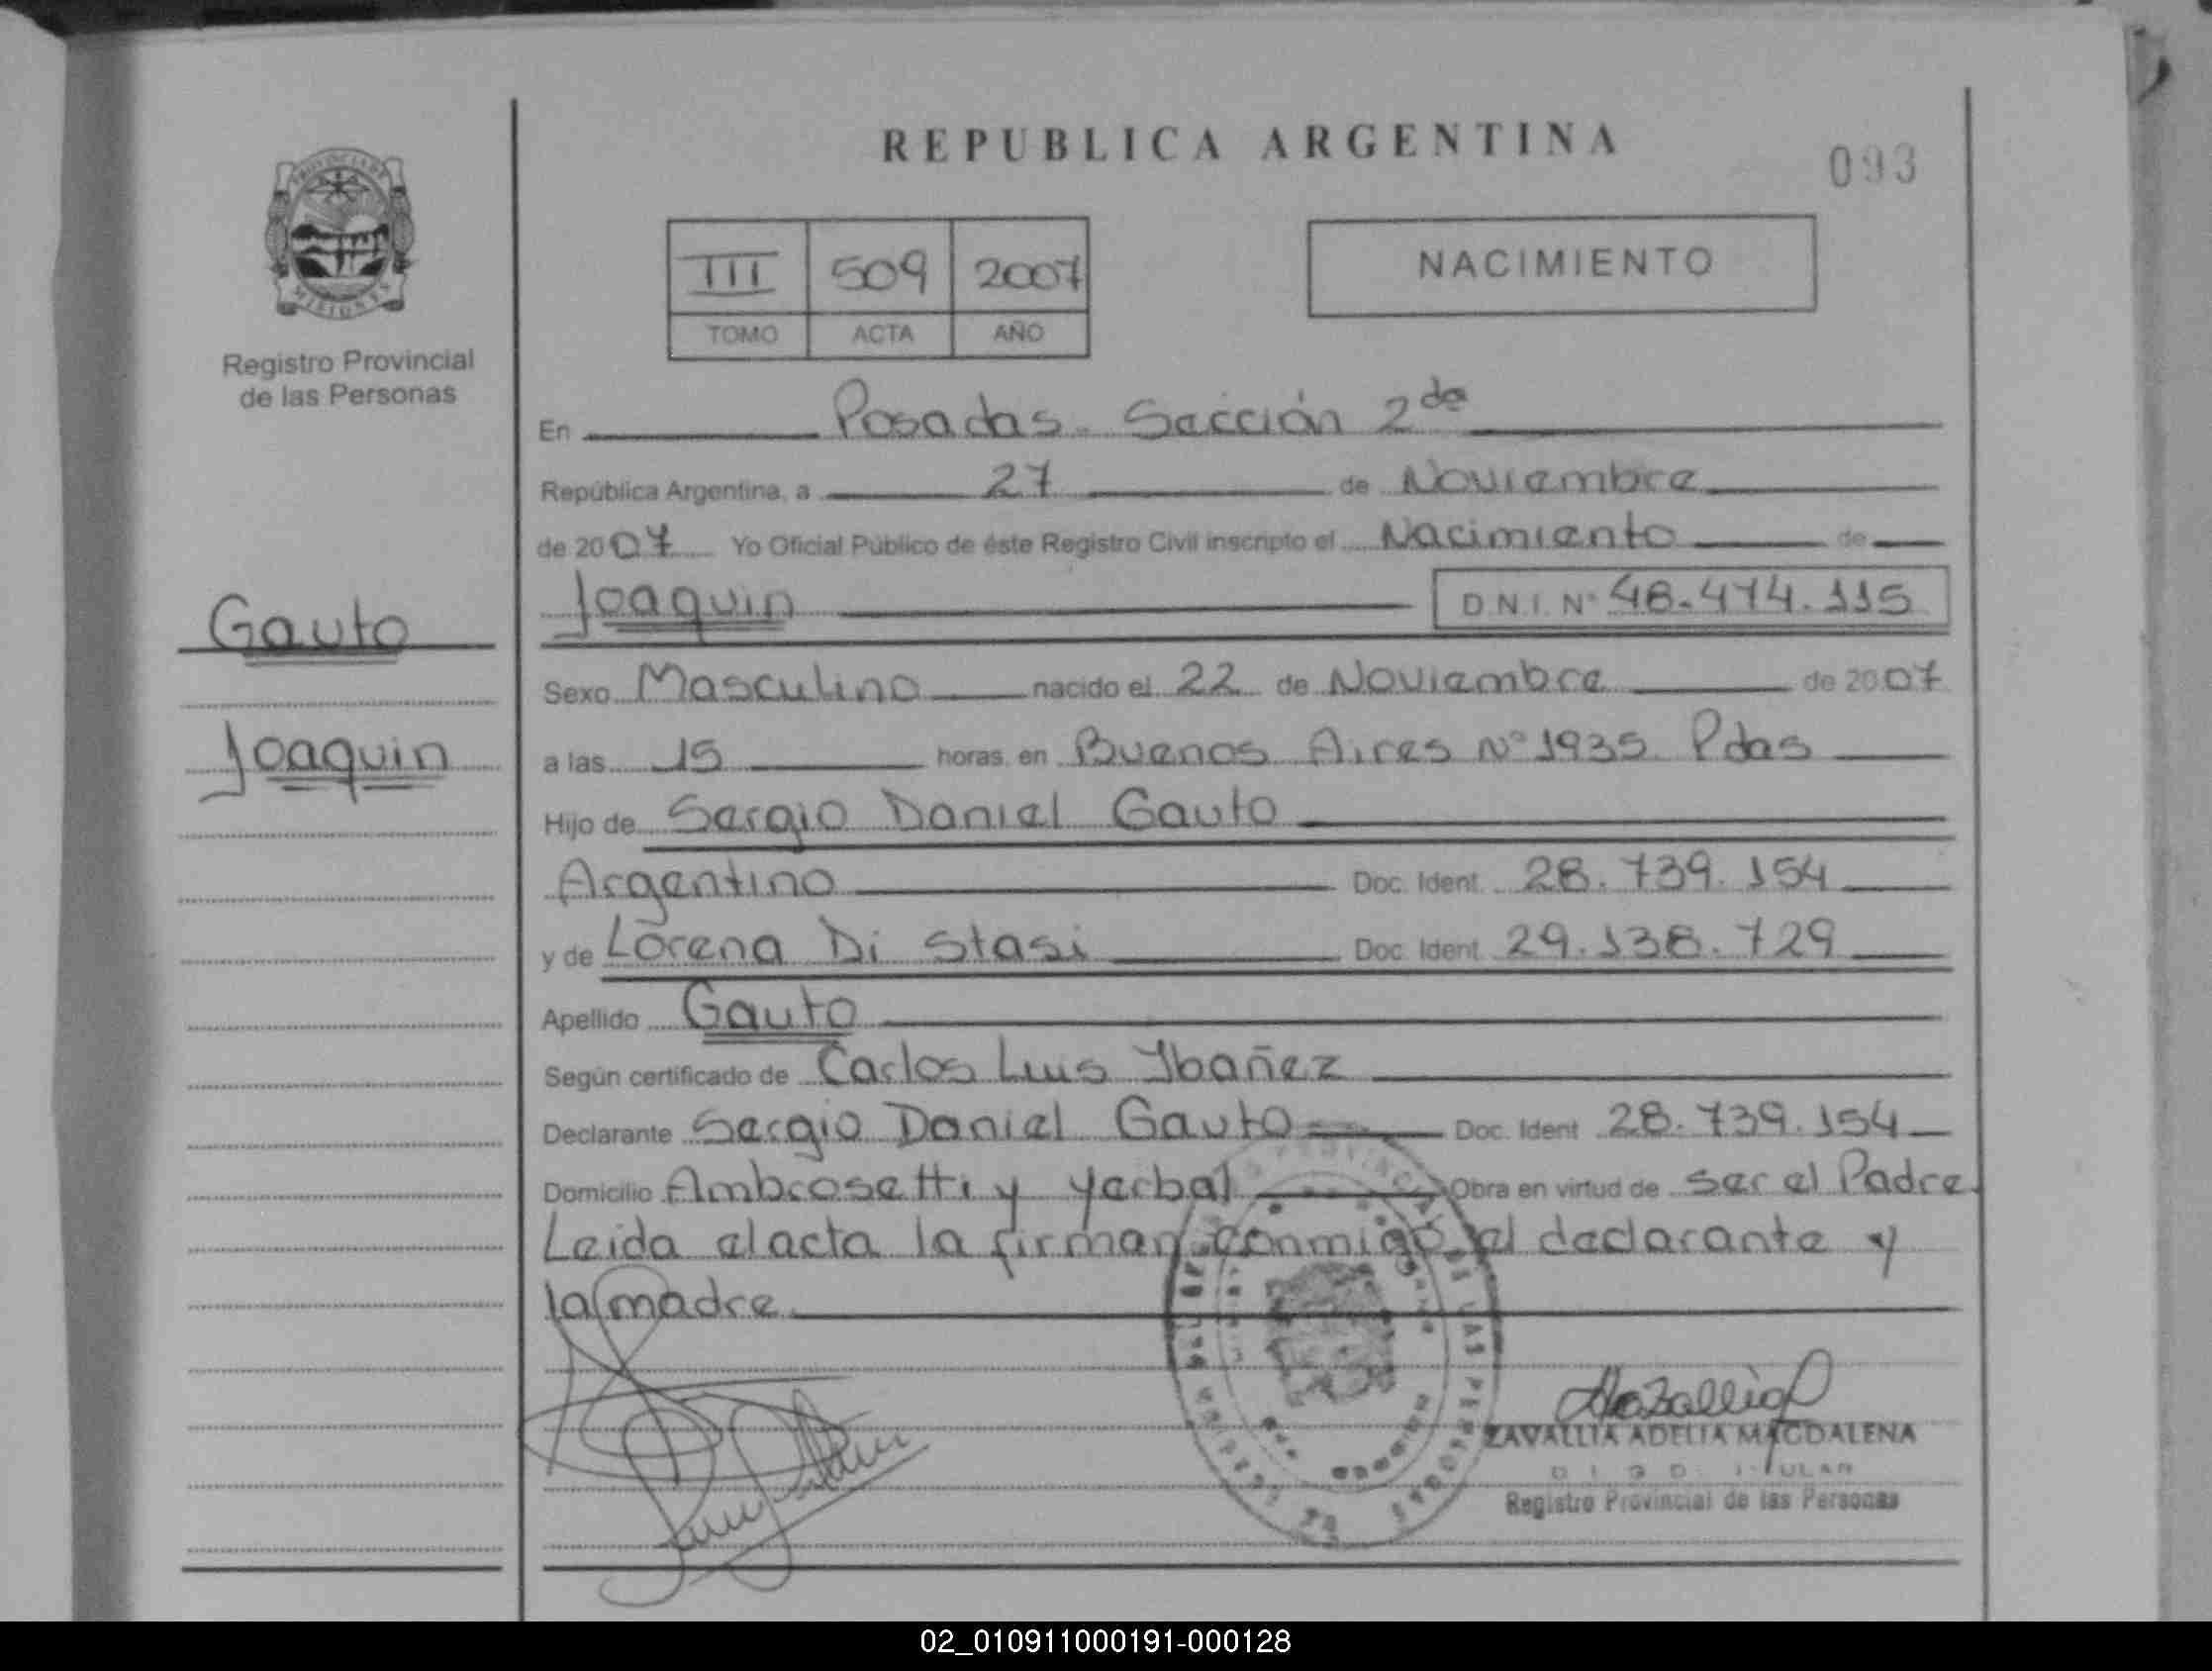 REPUBLICA ARGENTINA
093
PROVINCIA DE
MISIONES
Registro Provincial
de las Personas
III 509 2007
TOMO ACTA AÑO
NACIMIENTO
En Posadas - Sección 2da
República Argentina, a 27 de Noviembre
de 2007 Yo Oficial Público de éste Registro Civil inscripto el Nacimiento de
Joaquin D.N.I. Nº 48.474.115
Gauto
Joaquin
Sexo Masculino nacido el 22 de Noviembre de 2007
a las 15 horas, en Buenos Aires Nº 1935 Pdas
Hijo de Sergio Daniel Gauto
Argentino Doc. Ident. 28.739.154
y de Lorena Di Stasi Doc. Ident. 29.138.729
Apellido Gauto
Según certificado de Carlos Luis Ybañez
Declarante Sergio Daniel Gauto Doc. Ident. 28.739.154
Domicilio Ambrosetti y Yerbal Obra en virtud de ser el Padre.
Leida el acta la firman conmigo el declarante y
la madre.
ZAVALLIA ADELIA MAGDALENA
Registro Provincial de las Personas
02_010911000191-000128